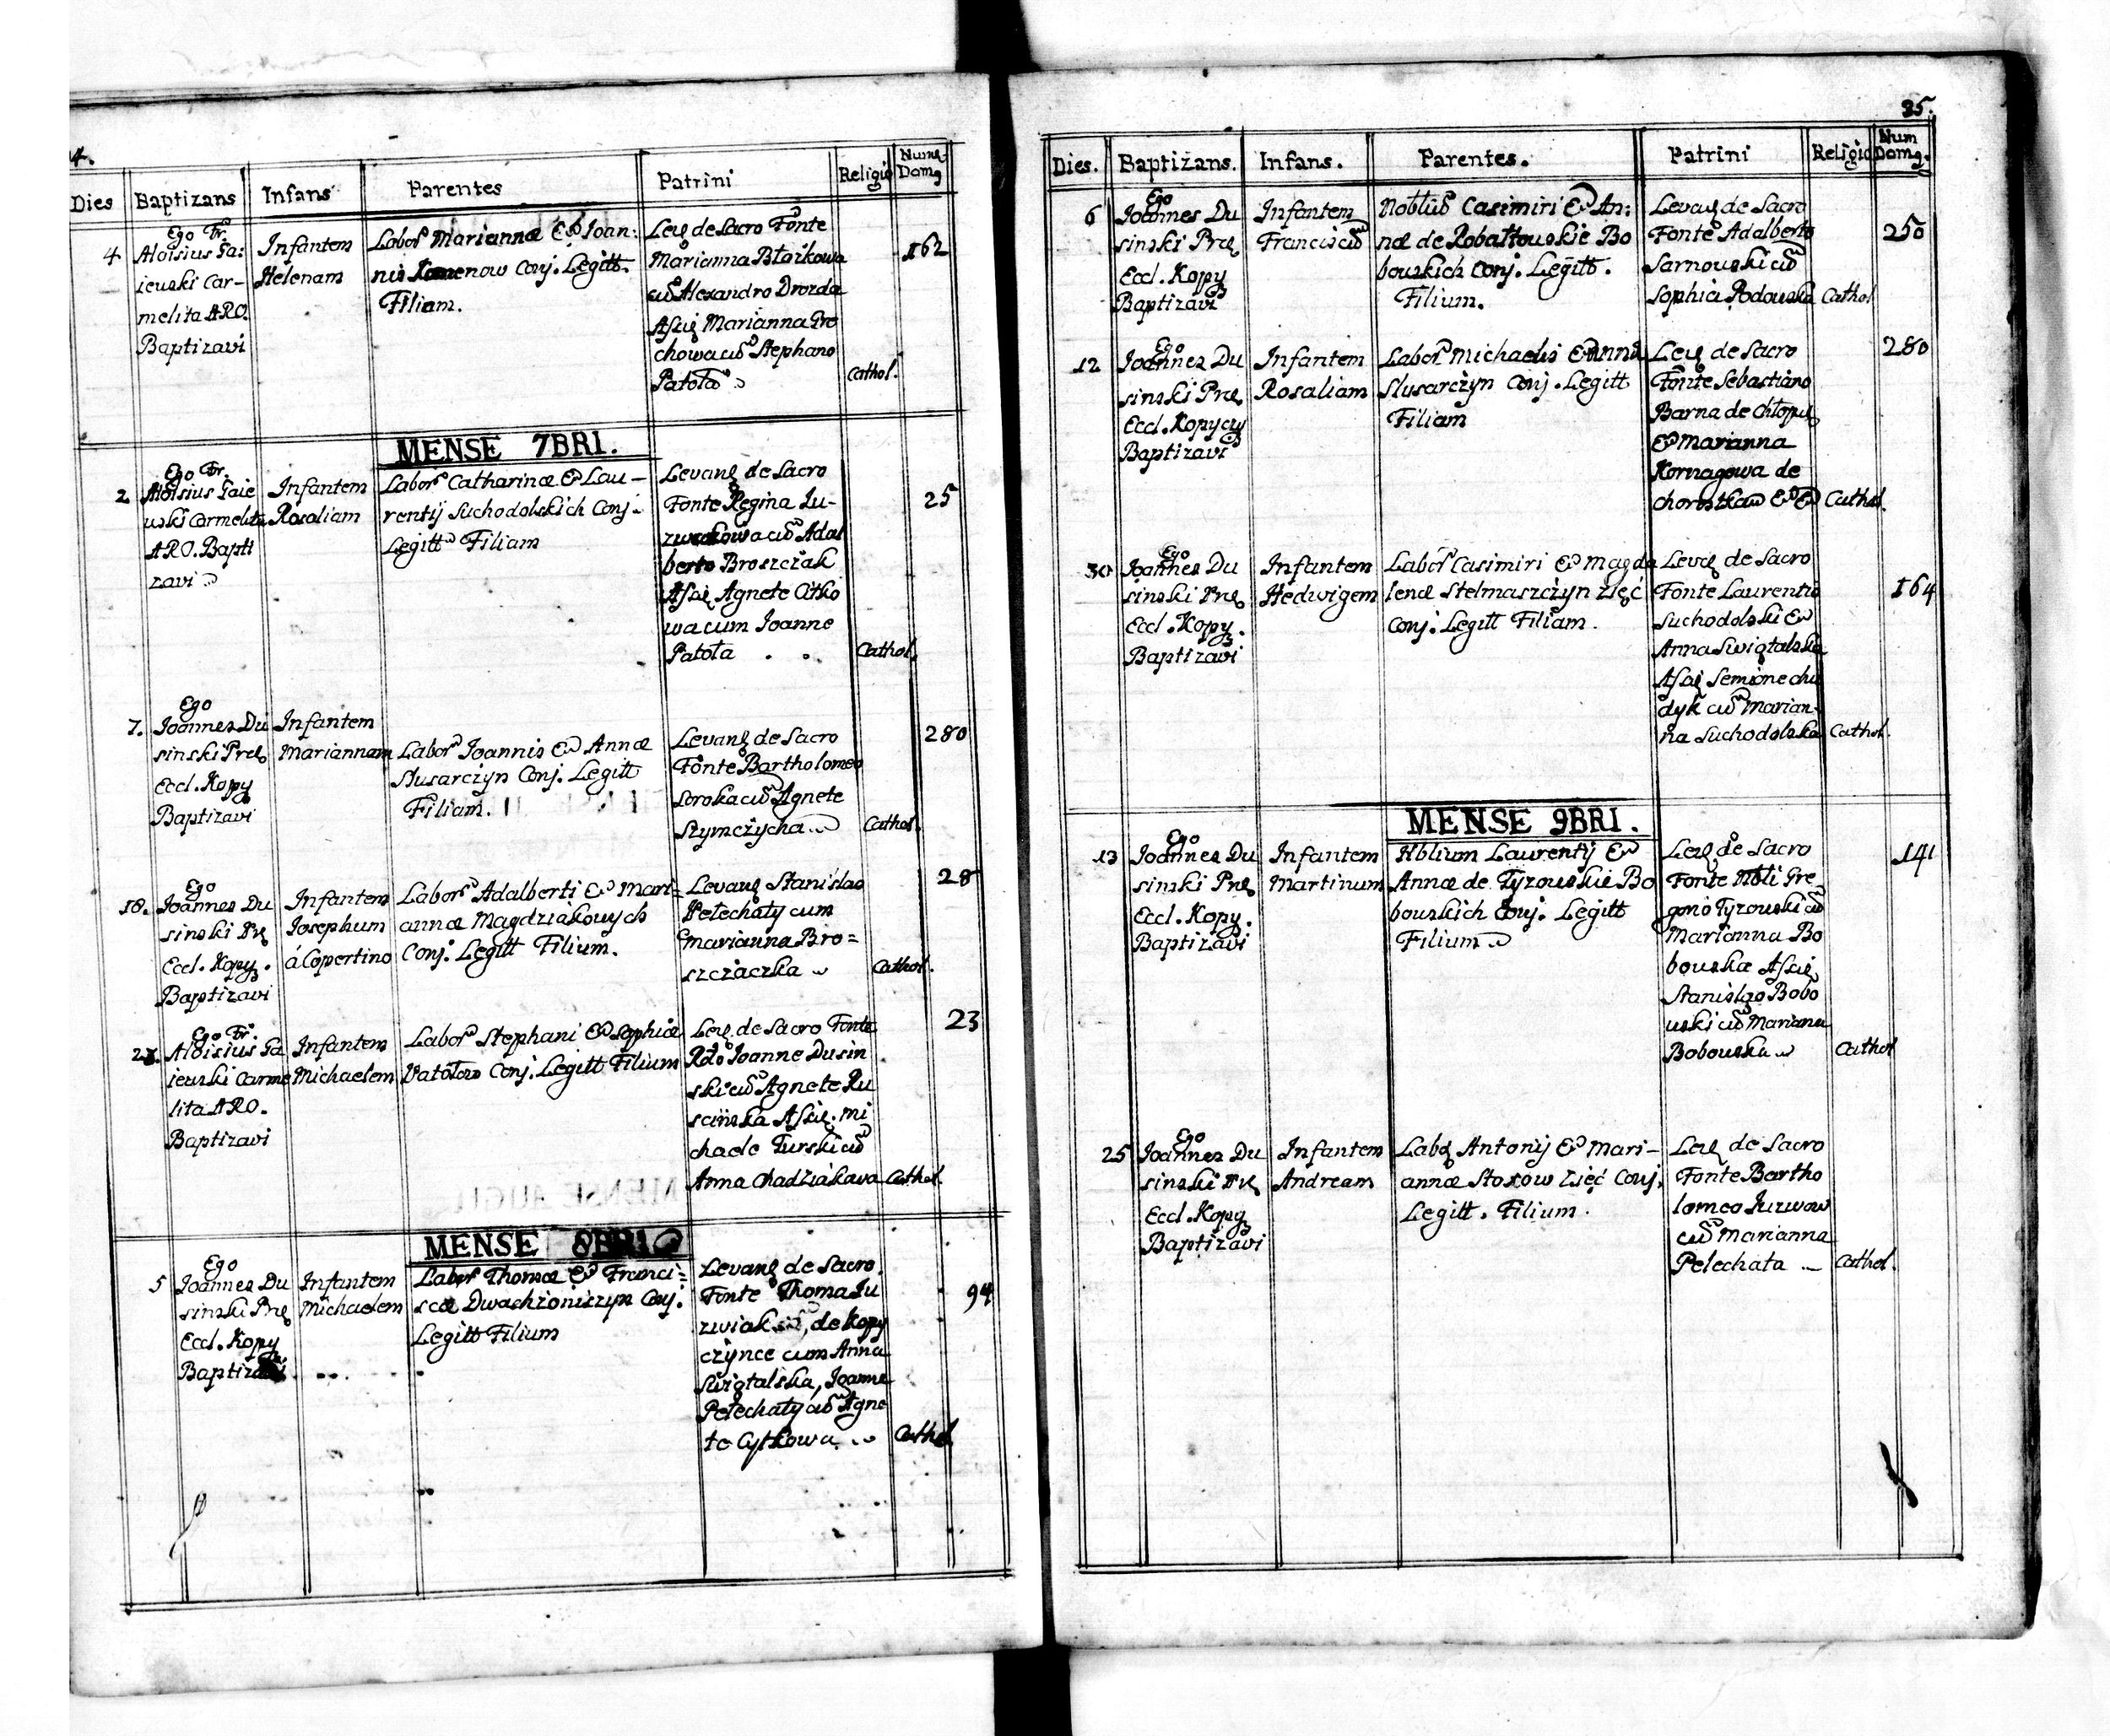 4.
Dies Baptizans Infans Parentes Patrini Religio Num9 Dom9
4
Ego Fr.
Aloisius Ga:
ieuski Car-
melita ARO.
Baptizavi
Infantem
Helenam
Labor Mariannæ & Ioan:
nis Conj. Legitt.
Filiam.
Lev de Sacro Fonte
Marianna Błaikowa
cū Alexandro Drozda
Assis Marianna Gro
chowa cū Stephano
Patoła
Cathol.
162
MENSE 7BRI.
2
Ego Fr.
Aloisius Gaie
uski Carmelita
ARO. Bapti
zavi
Infantem
Rosaliam
Labor Catharinæ & Lau-
rentij Suchodolskich Conj.
Legitt Filiam
Levan de Sacro
Fonte Regina Iu-
zwiakowa cū Adal
berto Broszczak
Assis Agnete Citko
wa cum Ioanne
Patoła
Cathol.
25
7.
Ego
Ioannes Du
sinski Præ
Eccl. Kopy
Baptizavi
Infantem
Mariannam
Labor Ioannis & Annæ
Slusarczyn Conj. Legitt
Filiam.
Levan de Sacro
Fonte Bartholomeo
Soroka cū Agnete
Szymczycha
Cathol.
280
18.
Ego
Ioannes Du
sinski Præ
Eccl. Kopy.
Baptizavi
Infantem
Josephum
á Copertino
Labor Adalberti & Mari=
annæ Magdziakowych
Conj. Legitt Filium.
Levan Stanislao
Pełechaty cum
Marianna Bro=
szczaczka
Cathol.
28
Ego Fr.
Aloisius Ga
ieuski Carme
lita ARO.
Baptizavi
Infantem
Michaelem
Labor Stephani & Sophiæ
Patołow Conj. Legitt Filium
Lev de Sacro Fonte
Rdo Ioanne Dusin
ski cū Agnete Ru
scinska Assis. Mi
chaele Turski cū
Anna Chadziakowa
Cathol.
23
MENSE 8BRI
5
Ego
Ioannes Du
sinski Præ
Eccl. Kopy
Baptizavi
Infantem
Michaelem
Labor Thomæ & Franci=
scæ Dwachzoniszyn Conj.
Legitt Filium
Levan de Sacro
Fonte Thoma Iu
zwiak de Kopy
czynce cum Anna
Swigtalska, Ioanne
Pełechaty cū Agne
te Cytkowa
Cathol.
94
35.
Dies. Baptizans. Infans. Parentes. Patrini Religio Num Dom9.
6
Ego
Ioannes Du
sinski Præ
Eccl. Kopy
Baptizavi
Infantem
Franciscū
Nobliū Casimiri & An:
næ de Robattouskie Bo
bouskich Conj. Legitt.
Filium.
Levan de Sacro
Fonte Adalberto
Sarnouski cū
Sophia Rodouska
Cathol
250
12
Ego
Ioannes Du
sinski Præ
Eccl. Kopyczy
Baptizavi
Infantem
Rosaliam
Labor Michaelis & Annæ
Slusarczyn Conj. Legitt
Filiam
Lev de Sacro
Fonte Sebastiano
Barna de
& Marianna
Kornagowa de
Chorostkow & &
Cathol.
280
30
Ego
Ioannes Du
sinski Præ
Eccl. Kopy.
Baptizavi
Infantem
Hedwigem
Labor Casimiri & Magda
lenæ Stelmaszczyn Zięć
Conj. Legitt Filiam.
Leva de Sacro
Fonte Laurentio
Suchodolski &
Anna Swigtalska
Assis Semione Chu
dyk cū Marian
na Suchodolska
Cathol.
164
MENSE 9BRI.
13
Ego
Ioannes Du
sinski Præ
Eccl. Kopy.
Baptizavi
Infantem
Martinum
Nblium Laurentij &
Annæ de Tyzouskie Bo
bouskich Conj. Legitt
Filium
Lev de Sacro
Fonte Nbli Gre
gorio Tyzouski cū
Marianna Bo
bouska Assis
Stanislao Bobo
uski cū Mariana
Bobouska
Cathol
141
25
Ego
Ioannes Du
sinski Præ
Eccl. Kopy
Baptizavi
Infantem
Andream
Labo Antonij & Mari-
annæ Stoxow Zięć Conj.
Legitt. Filium.
Lev de Sacro
Fonte Bartho
lomeo Iuzwow
cū Marianna
Pelechata
Cathol.